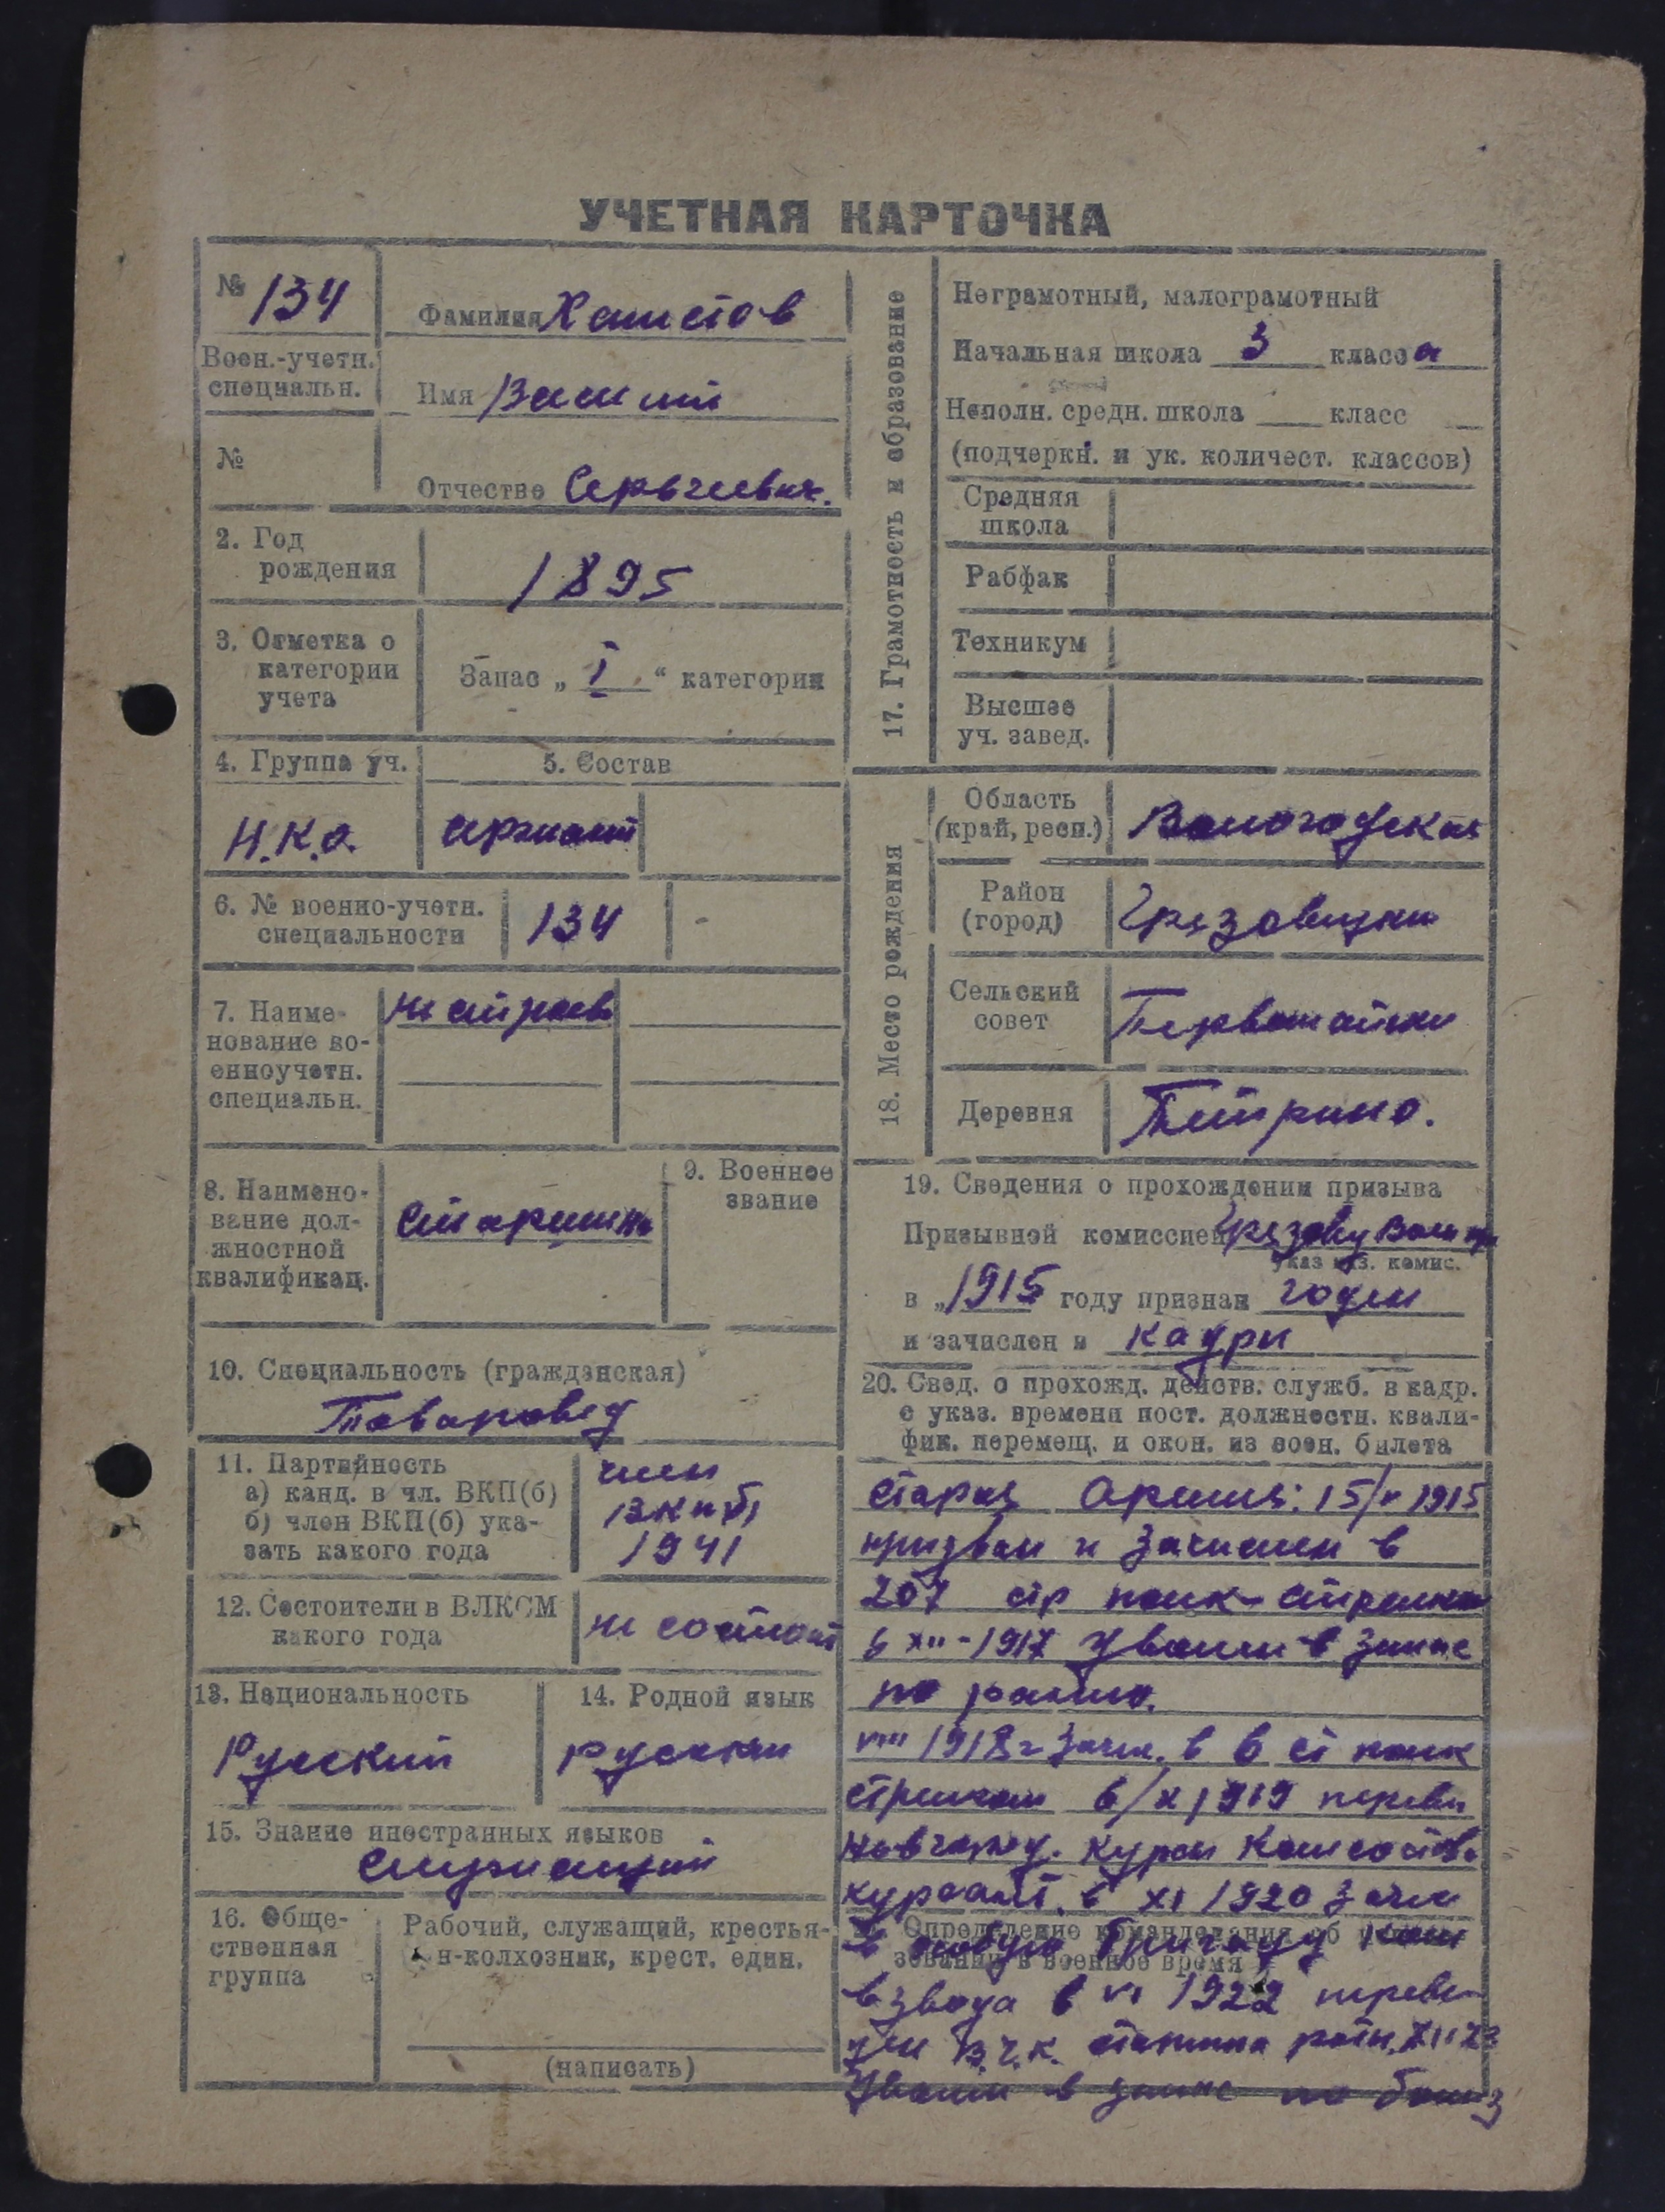 УЧЕТНАЯ КАРТОЧКА
№ 134
Фамилия
Воен.-учетн.
специальн.
Имя Василий
№
Отчество Сергеевич.
2. Год
рождения
1895
3. Отметка о
категории
учета
Запас „ I “ категории
4. Группа уч.
5. Состав
Н.К.О.
сержант
6. № военно-учетн.
специальности
134
-
7. Наиме-
нование во-
енноучетн.
специальн.
не строев
8. Наимено-
вание дол-
жностной
квалификац.
Старшина
9. Военное
звание
10. Специальность (гражданская)
Товаровед
11. Партийность
а) канд. в чл. ВКП(б)
б) член ВКП(б) ука-
зать какого года
член
ВКП(б)
1941
12. Состоит ли в ВЛКСМ
какого года
не состоит
13. Национальность
Русский
14. Родной язык
русский
15. Знание иностранных языков
Служащий
16. Обще-
ственная
группа
Рабочий, служащий, крестья-
н-колхозник, крест. един.
(написать)
17. Грамотность и образование
Неграмотный, малограмотный
Начальная школа 3 класса
Неполн. средн. школа класс
(подчеркн. и ук. количест. классов)
Средняя
школа
Рабфак
Техникум
Высшее
уч. завед.
18. Место рождения
Область
(край, респ.)
Вологодская
Район
(город)
Грязовецкий
Сельский
совет
Первомайский
Деревня
19. Сведения о прохождении призыва
Призывной комиссией
указ наз. комис.
в „1915 году признан годен
и зачислен в кадры
20. Свед. о прохожд. действ. служб. в кадр.
с указ. времени пост. должностн. квали-
фик. перемещ. и окон. из воен. билета
Старая Армия: 15/V 1915
призван и зачислен в
207 стр полк стрелком
в XII-1917 уволен в запас
по ранению.
VIII 1918 г зачис. в 6 ст полк
стрелком в/X 1919 перевед
курсы Комсостава
курсант. в XI 1920 зачис
Определение командования об
зовании в военное время
в особую бригаду ком
взвода в VI 1922 переве-
ден В.Ч.К. старшина роты. XII 23
Уволен в запас по